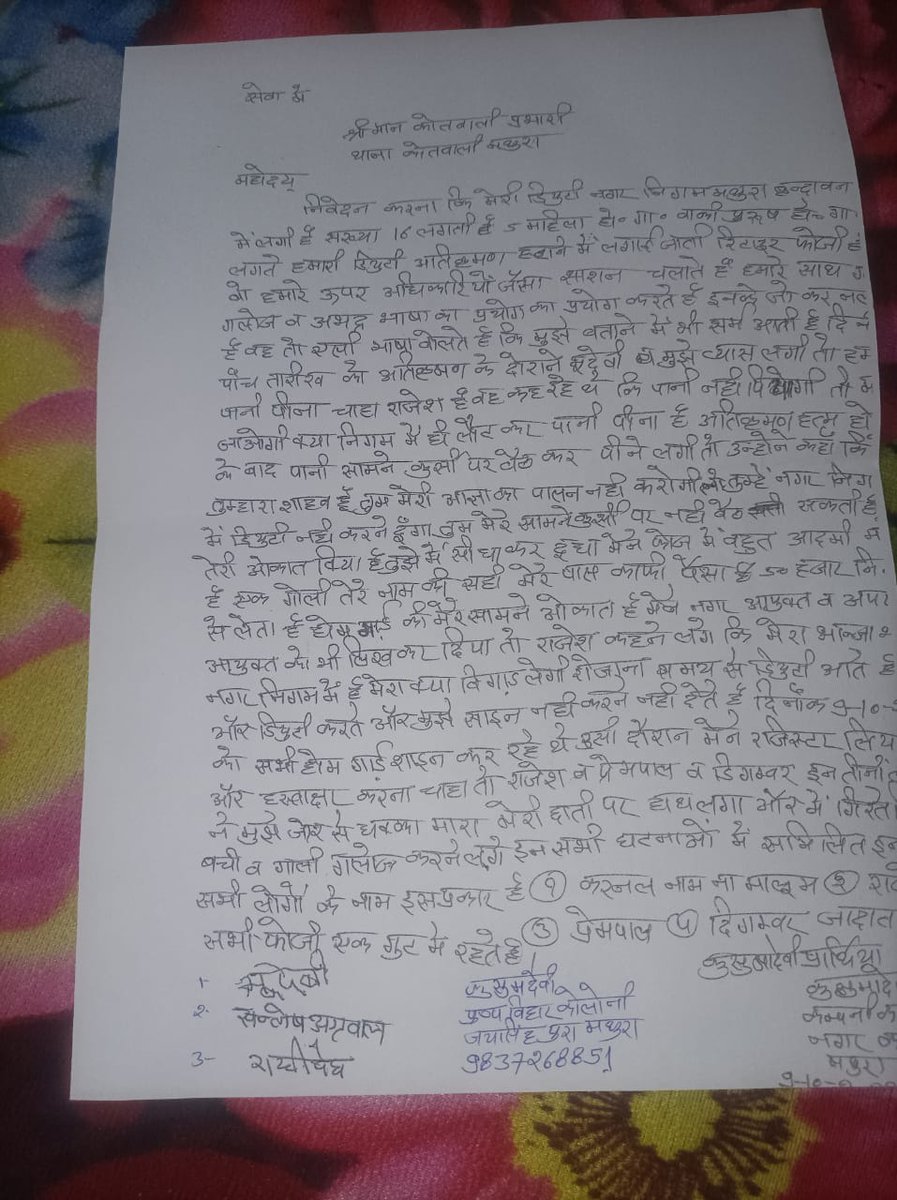 सेवा में
श्री मान कोतवाली प्रभारी
थाना कोतवाली मथुरा
महोदय
निवेदन करना कि मेरी डियुटी नगर निगम मथुरा वृन्दावन
में लगी है सख्या 16 लगती है 5 महिला हो० गा० वाकी पुरूष हो० गा
लगते हमारी डियुटी अतिक्रमण हटाने में लगाई जाती रिटाइर फोजी है
वो हमारे ऊपर अधिकारियों जैसा साशन चलाते हैं हमारे साथ ग
गलोज व अभद्र भाषा का प्रयोग का प्रयोग करते हैं इनके जो करनल
है वह तो एसी भाषा वोलते है कि मुझे वताने में भी सर्म आती है दिनं
पाँच तारीख को अतिक्रमण के दोराने भूदेवी व मुझे प्यास लगी तो हम
पानी पीना चाहा राजेश है वह कह रहे थे कि पानी नही पियोगी तो म
जाओगी क्या निगम में ही लौट कर पानी पीना है अतिक्रमण हत्म हो
के बाद पानी सामने कुर्सी पर वैठ कर पीने लगी तो उन्होने कहा कि
तुम्हारा शाहव है तुम मेरी आज्ञा का पालन नही करोगी तो तुम्हे नगर निग
में डियुटी नही करने दूँगा तुम मेरे सामने कुर्सी पर नही वैठ सकती है
तेरी ओकात क्या है तुझे में सीधा कर दूंगा मेने फोज में वहुत आदमी म
है एक गोली तेरे नाम की सही मेरे पास काफी पैसा है 50 हजार नि.
से लेता है होम गार्ड की मेरे सामने ओकात है मेने नगर आयुक्त व अपर
आयुक्त को भी लिख कर दिया तो राजेश कहने लगे कि मेरा भान्जा
नगर निगम में है मेरा क्या विगाड़ लेगी रोजाना समय से डियुटी आते है
और डियुटी करते और मुझे साइन नही करने नही देते है दिनाँक 9-10-
को सभी होम गार्ड साइन कर रहे थे उसी दौरान मेने राजिस्टर लिय
और हस्ताक्षर करना चाहा तो राजेश व प्रेमपाल व दिगम्वर इन तीनों
ने मुझे जोर से धक्का मारा मेरी छाती पर हाथ लगा और में गिरते
वची व गाली गलोज करने लगे इन सभी घटनाओं में समिलित इन
सभी लोगों के नाम इस प्रकार है ① करनल नाम ना मालूम ②
③ प्रेमपाल ④ दिगम्वर
सभी फोजी एक गुट में रहते है।
कुसुमदेवी प्रार्थिया
1. भूदेवी
2. सन्तोष अग्रवाल
3-
कुसुमदेवी
पुष्प विहार कोलोनी
जयसिंह पुरा मथुरा
9837268851
कम्पनी
नगर
मथुरा
9-10-